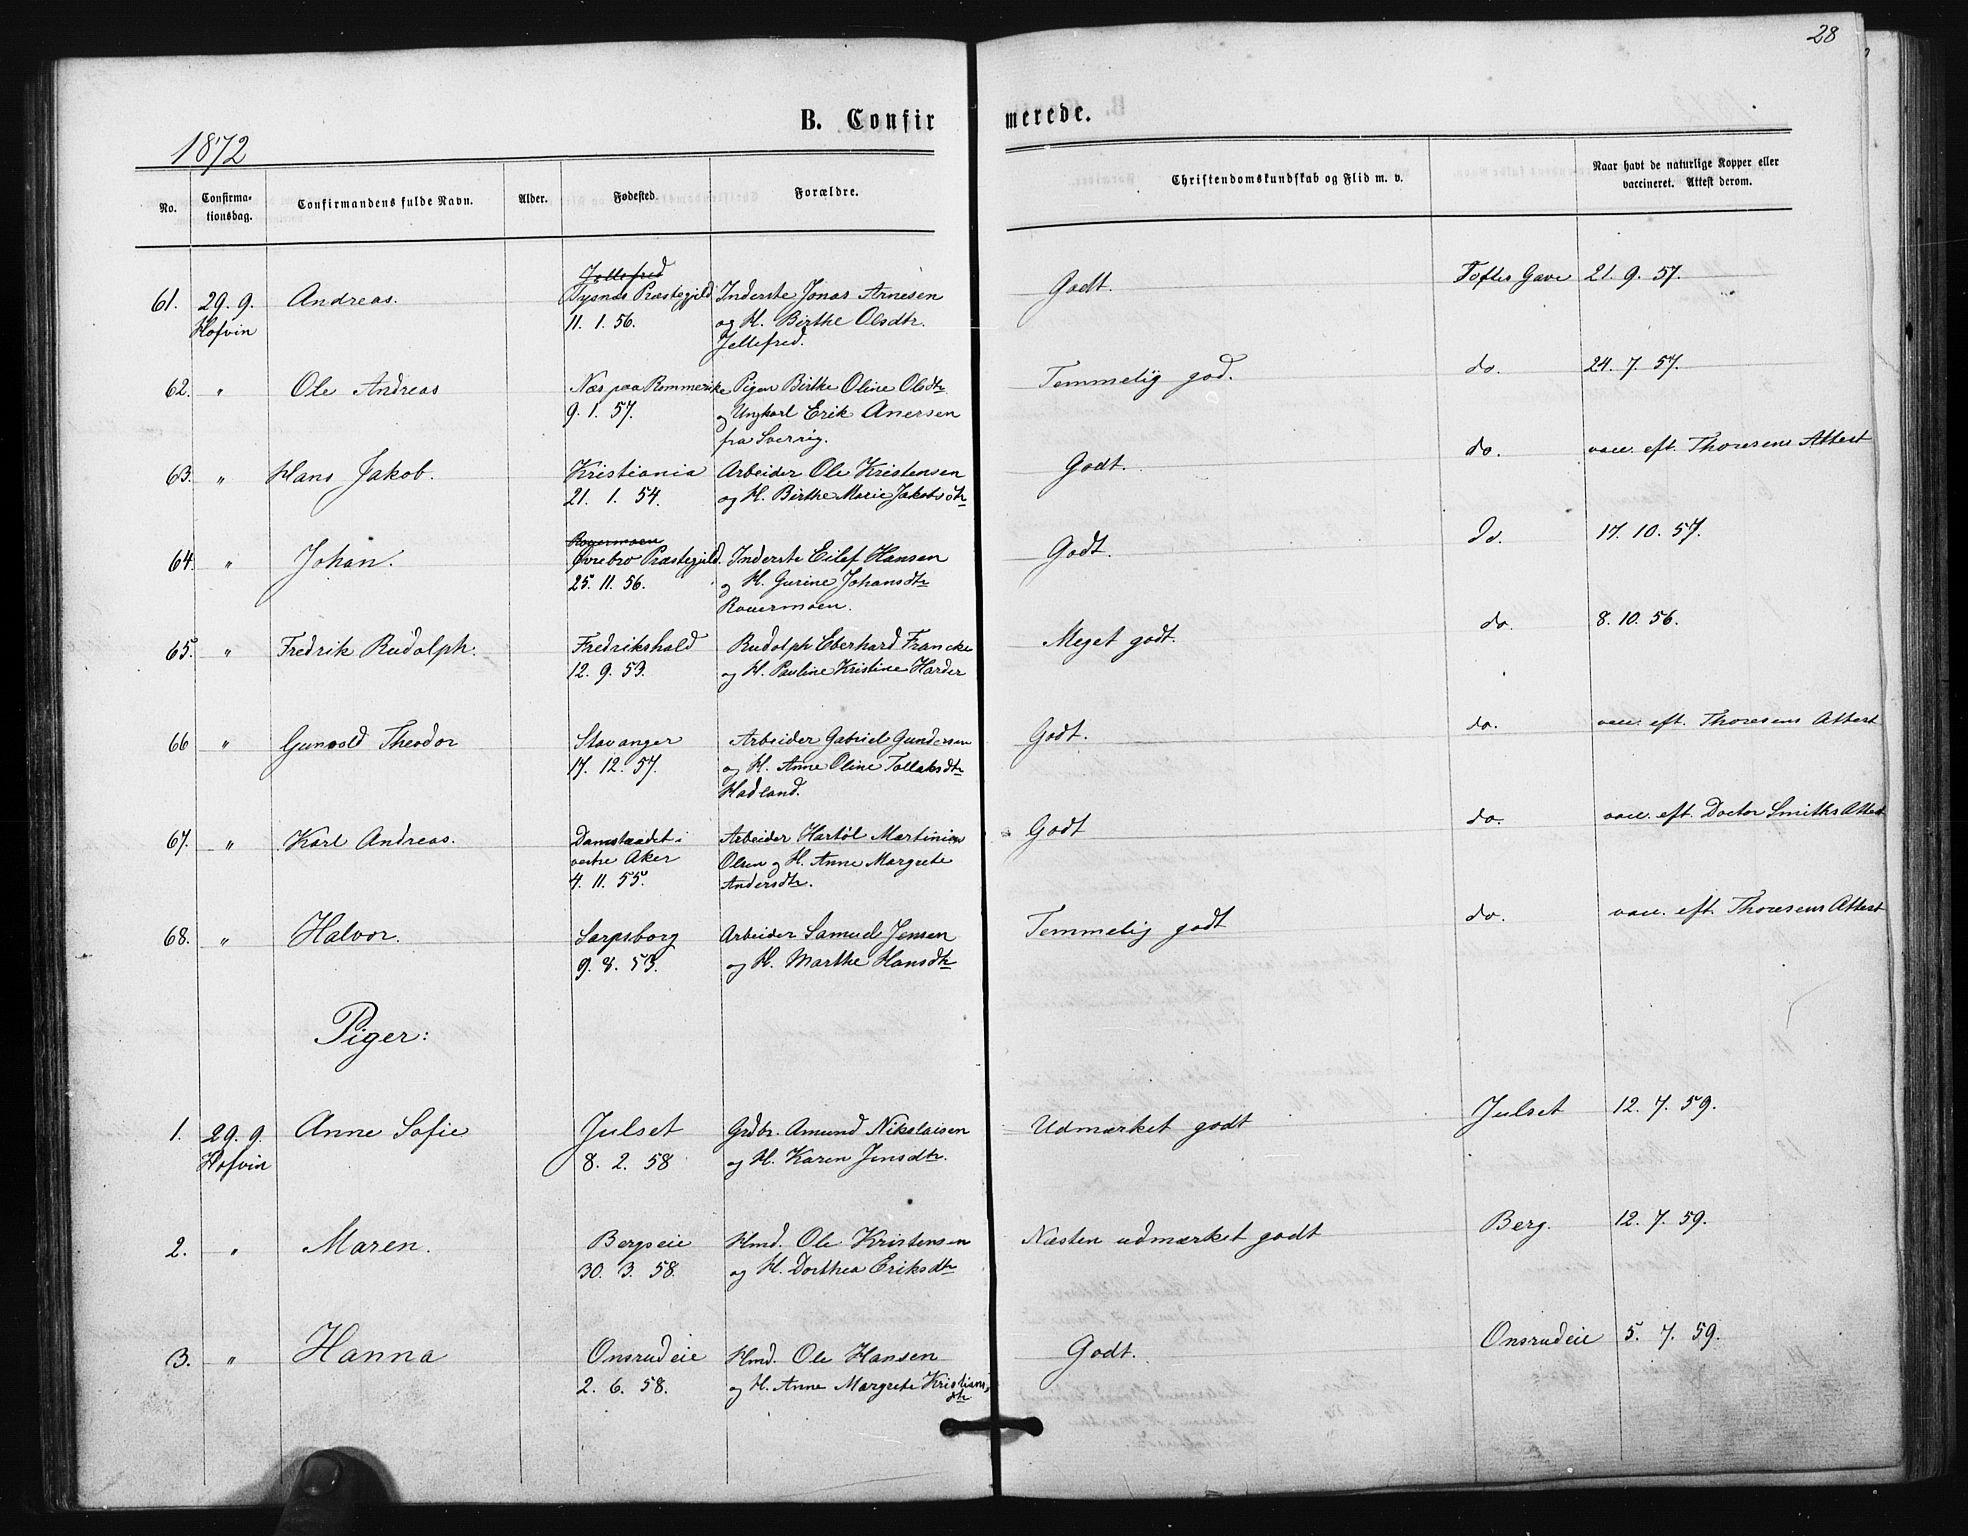 28
B. Confirmerede.
1872
No.
Confirmationsdag.
Confirmandens fulde Navn.
Alder.
Fødested.
Forældre.
Christendomskundskab og Flid m. v.
Naar havt de naturlige Kopper eller
vaccineret. Attest derom.
61. 29. 9. Hofvin
Andreas.
Jellefred
Tysnæs Præstegjeld
11. 1. 56.
Inderste Jonas Arnesen
og H. Birthe Olsdtr.
Jellefred.
Godt.
Toftes Gave
21. 9. 57.
62. "
Ole Andreas
Næs paa Rommerike
9. 1. 57.
Pigen Birthe Oline Olsdtr
og Ungkarl Erik Anersen
fra Sverrig.
Temmelig god.
do.
24. 7. 57.
63. "
Hans Jakob.
Kristiania
21. 1. 54.
Arbeider Ole Kristensen
og H. Birthe Marie Jakobsdtr
Godt.
do.
vacc. eft. Thoresens Attest
64. "
Johan.
Rouermoen
Øvrebro Præstegjeld.
25. 11. 56.
Inderste Eilef Hansen
og H. Gurine Johansdtr
Rouermoen.
Godt.
do.
17. 10. 57.
65. "
Fredrik Rudolph.
Fredrikshald
12. 9. 53.
Rudolph Eberhard Francke
og H. Pauline Kristine Harder
Meget godt.
do.
8. 10. 56.
66 "
Gunvold Theodor
Stavanger
17. 12. 57.
Arbeider Gabriel Gundersen
og H. Anne Oline Tollaksdtr
Hadland.
Godt.
do.
vacc. eft. Thoresens Attest
67. "
Karl Andreas.
Damstrædet i
vestre Aker
4. 11. 55.
Arbeider Martinius
Olsen og H. Anne Margrete
Andersdtr.
Godt
do.
vacc. eft. Doctor Smiths Attest
68. "
Halvor.
Sarpsborg
9. 8. 53.
Arbeider Samuel Jensen
og H. Marthe Hansdtr
Temmelig godt
do.
vacc. eft. Thoresens Attest
Piger:
1. 29. 9. Hofvin
Anne Sofie
Julset
8. 2. 58
Grdbr. Amund Nikolaisen
og H. Karen Jensdtr.
Udmærket godt
Julset
12. 7. 59.
2. "
Maren.
Bergseie
30. 3. 58.
Hmd. Ole Kristensen
og H. Dorthea Eriksdtr
Næsten udmærket godt
Berg.
12. 7. 59.
3. "
Hanna
Onsrudeie
2. 6. 58.
Hmd. Ole Hansen
og H. Anne Margrete Kristiansdtr
Godt.
Onsrudeie
5. 7. 59.